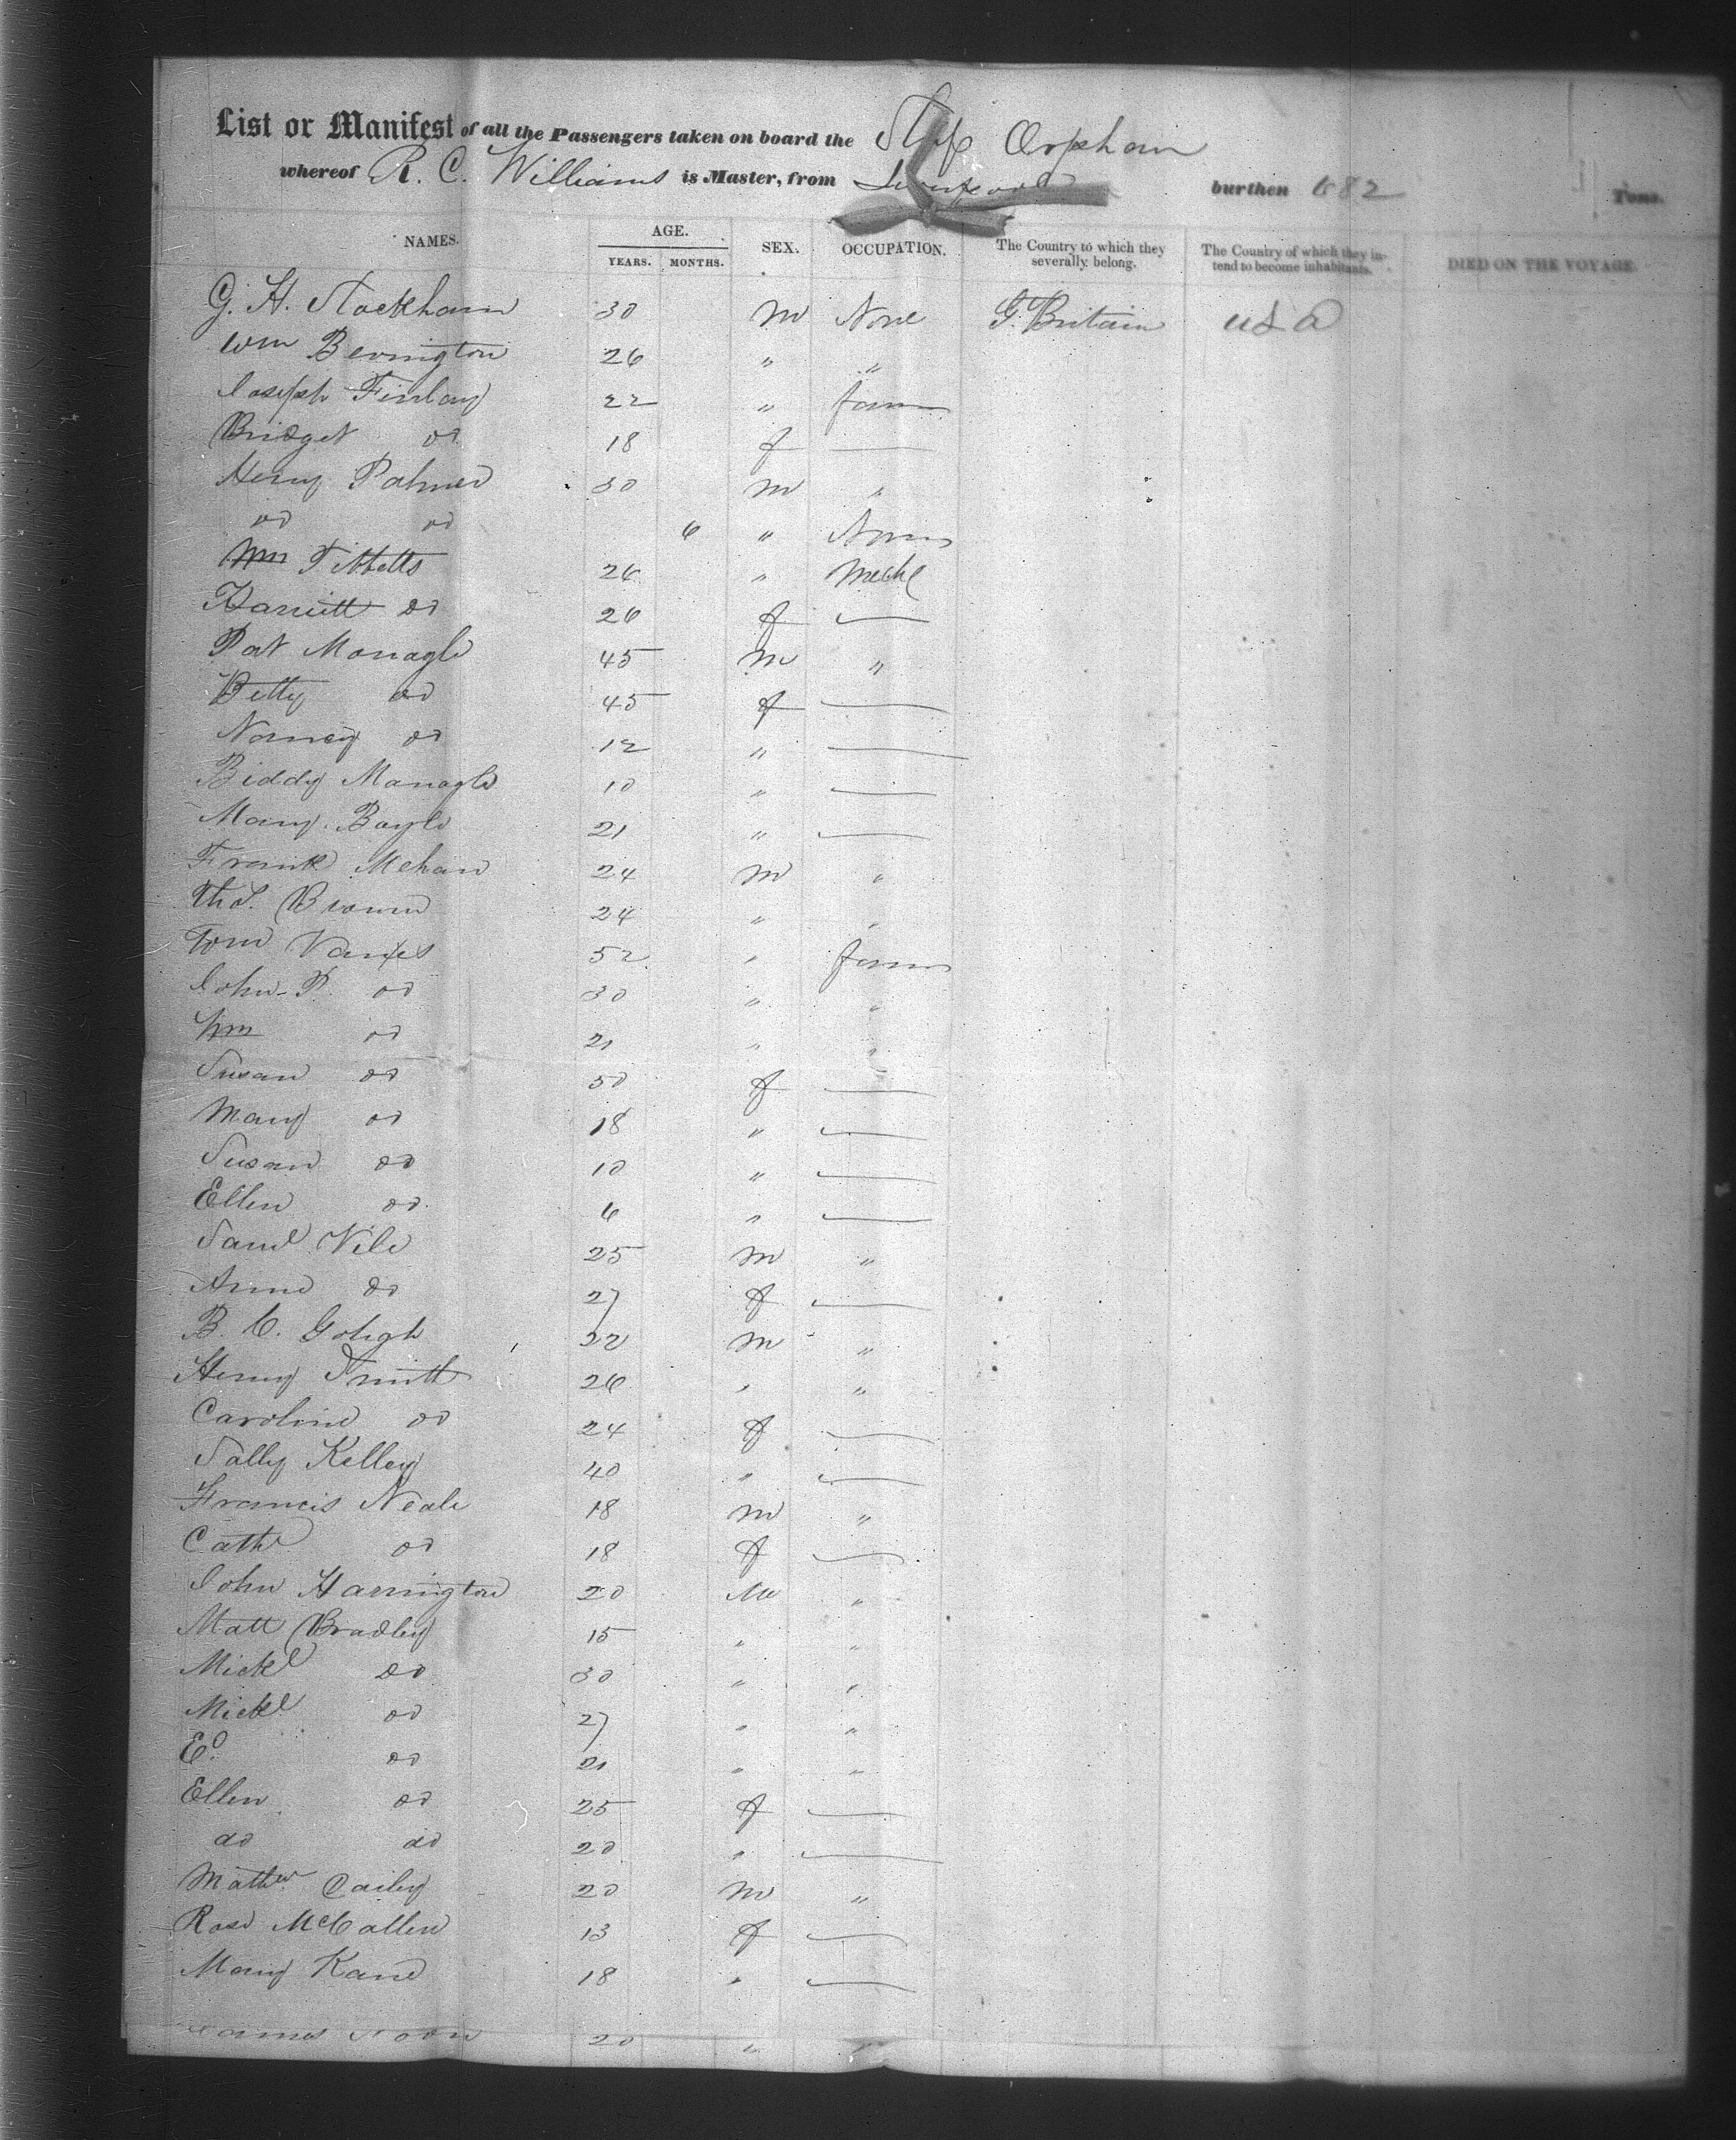 List or Manifest of all the Passengers taken on board the Ship Orphan
whereof R. C. Williams is Master, from Liverpool burthen 682 Tons.
NAMES. AGE. YEARS. MONTHS. SEX. OCCUPATION. The Country to which they severally belong. The Country of which they intend to become inhabitants. DIED ON THE VOYAGE.
G. H. Stockham 30 M None G. Britain USA
Wm Bevington 26 " "
Joseph Finlay 22 " farm
Bridget do 18 f —
Henry Palmer 30 M "
do do 6 " None
Wm Tibbetts 26 " Mechc
Harriett do 26 f —
Pat Monagle 45 M "
Betty do 45 f —
Nancy do 12 " —
Biddy Monagle 10 " —
Mary Boyle 21 " —
Frank Mehan 24 M "
Thos. Brown 24 " "
Wm 52 " farm
John P. do 30 " "
Wm do 21 " "
Susan do 50 f —
Mary do 18 " —
Susan do 10 " —
Ellen do 6 " —
Saml Vile 25 M "
Anne do 27 f —
B. C. Gohgh 22 M "
Henry Smith 26 " "
Caroline do 24 f —
Sally Kelley 40 " —
Francis Neale 18 M "
Cathe do 18 f —
John Harrington 20 M "
Matt Bradley 15 " "
Mickl do 30 " "
Mickl do 27 " "
Ed. do 21 " "
Ellen do 25 f —
do do 20 " —
Mathw Cailey 20 M "
Rose McCallen 13 f —
Mary Kane 18 " —
James 20 " "